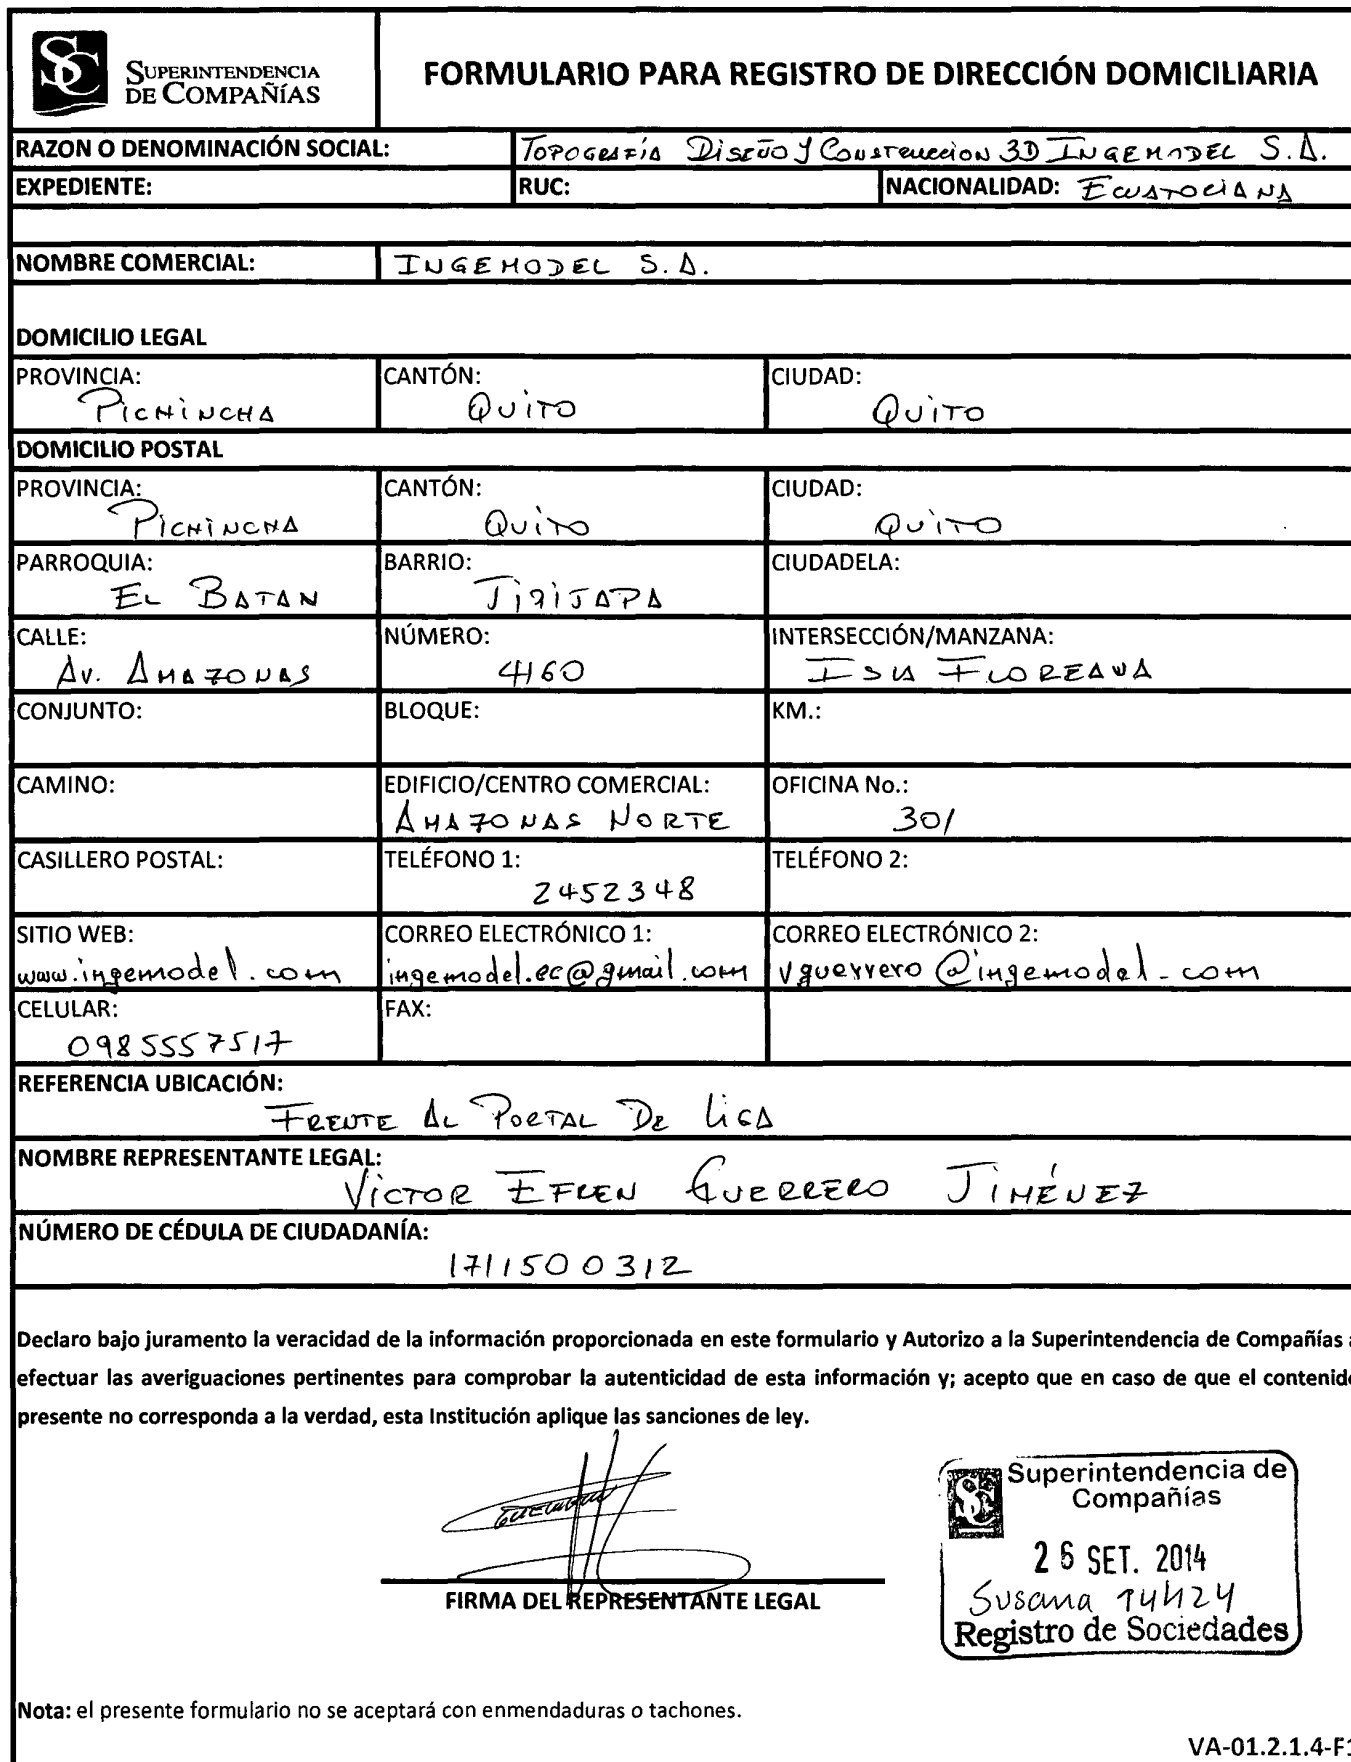 SUPERINTENDENCIA
DE COMPAÑÍAS
FORMULARIO PARA REGISTRO DE DIRECCIÓN DOMICILIARIA
RAZON O DENOMINACIÓN SOCIAL: TOPOGRAFÍA DISEÑO Y CONSTRUCCION 3D INGEMODEL S.A.
EXPEDIENTE: RUC: NACIONALIDAD: ECUATOCIANA
NOMBRE COMERCIAL: INGEMODEL S.A.
DOMICILIO LEGAL
PROVINCIA: CANTÓN: CIUDAD:
PICHINCHA QUITO QUITO
DOMICILIO POSTAL
PROVINCIA: CANTÓN: CIUDAD:
PICHINCHA QUITO QUITO
PARROQUIA: BARRIO: CIUDADELA:
EL BATAN JIPIJAPA
CALLE: NÚMERO: INTERSECCIÓN/MANZANA:
AV. AMAZONAS 4160 ISLA FLOREANA
CONJUNTO: BLOQUE: KM.:
CAMINO: EDIFICIO/CENTRO COMERCIAL: OFICINA No.:
AMAZONAS NORTE 301
CASILLERO POSTAL: TELÉFONO 1: TELÉFONO 2:
2452348
SITIO WEB: CORREO ELECTRÓNICO 1: CORREO ELECTRÓNICO 2:
www.ingemodel.com ingemodel.ec@gmail.com vguerrero@ingemodel.com
CELULAR: FAX:
0985557517
REFERENCIA UBICACIÓN:
FRENTE AL PORTAL DE LIGA
NOMBRE REPRESENTANTE LEGAL:
VICTOR EFREN GUERRERO JIMÉNEZ
NÚMERO DE CÉDULA DE CIUDADANÍA:
1711500312
Declaro bajo juramento la veracidad de la información proporcionada en este formulario y Autorizo a la Superintendencia de Compañías a
efectuar las averiguaciones pertinentes para comprobar la autenticidad de esta información y; acepto que en caso de que el contenido
presente no corresponda a la verdad, esta Institución aplique las sanciones de ley.
FIRMA DEL REPRESENTANTE LEGAL
Superintendencia de
Compañías
26 SET. 2014
Susana 14H24
Registro de Sociedades
Nota: el presente formulario no se aceptará con enmendaduras o tachones.
VA-01.2.1.4-F1